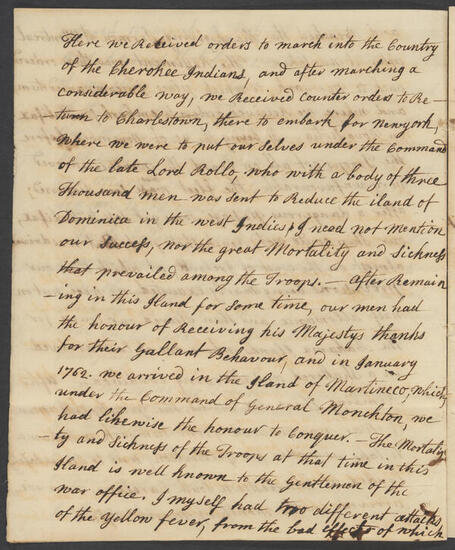 Here we Received orders to march into the Country
of the Cherokee Indians, and after marching a
considerable way, we Received counter orders to Re-
-turn to Charlestown, there to embark for Newyork,
where we were to put our selves under the Command
of the late Lord Rollo, who with a body of three
Thousand men was sent to Reduce the iland of
Dominica in the west Indies, I need not mention
our Success, nor the great Mortality and Sickness
that prevailed among the Troops. — After Remain
-ing in this Iland for some time, our men had
the honour of Receiving his Majestys thanks
for their Gallant Behavour, and in January
1762. we arrived in the Iland of Martineco, which,
under the Command of General Monckton, we
had likewise the honour to Conquer. — The Mortali
-ty and Sickness of the Troops at that time in this
Iland is well known to the Gentlemen of the
war office. I myself had two different attacks
of the Yellow fever, from the bad effects of which